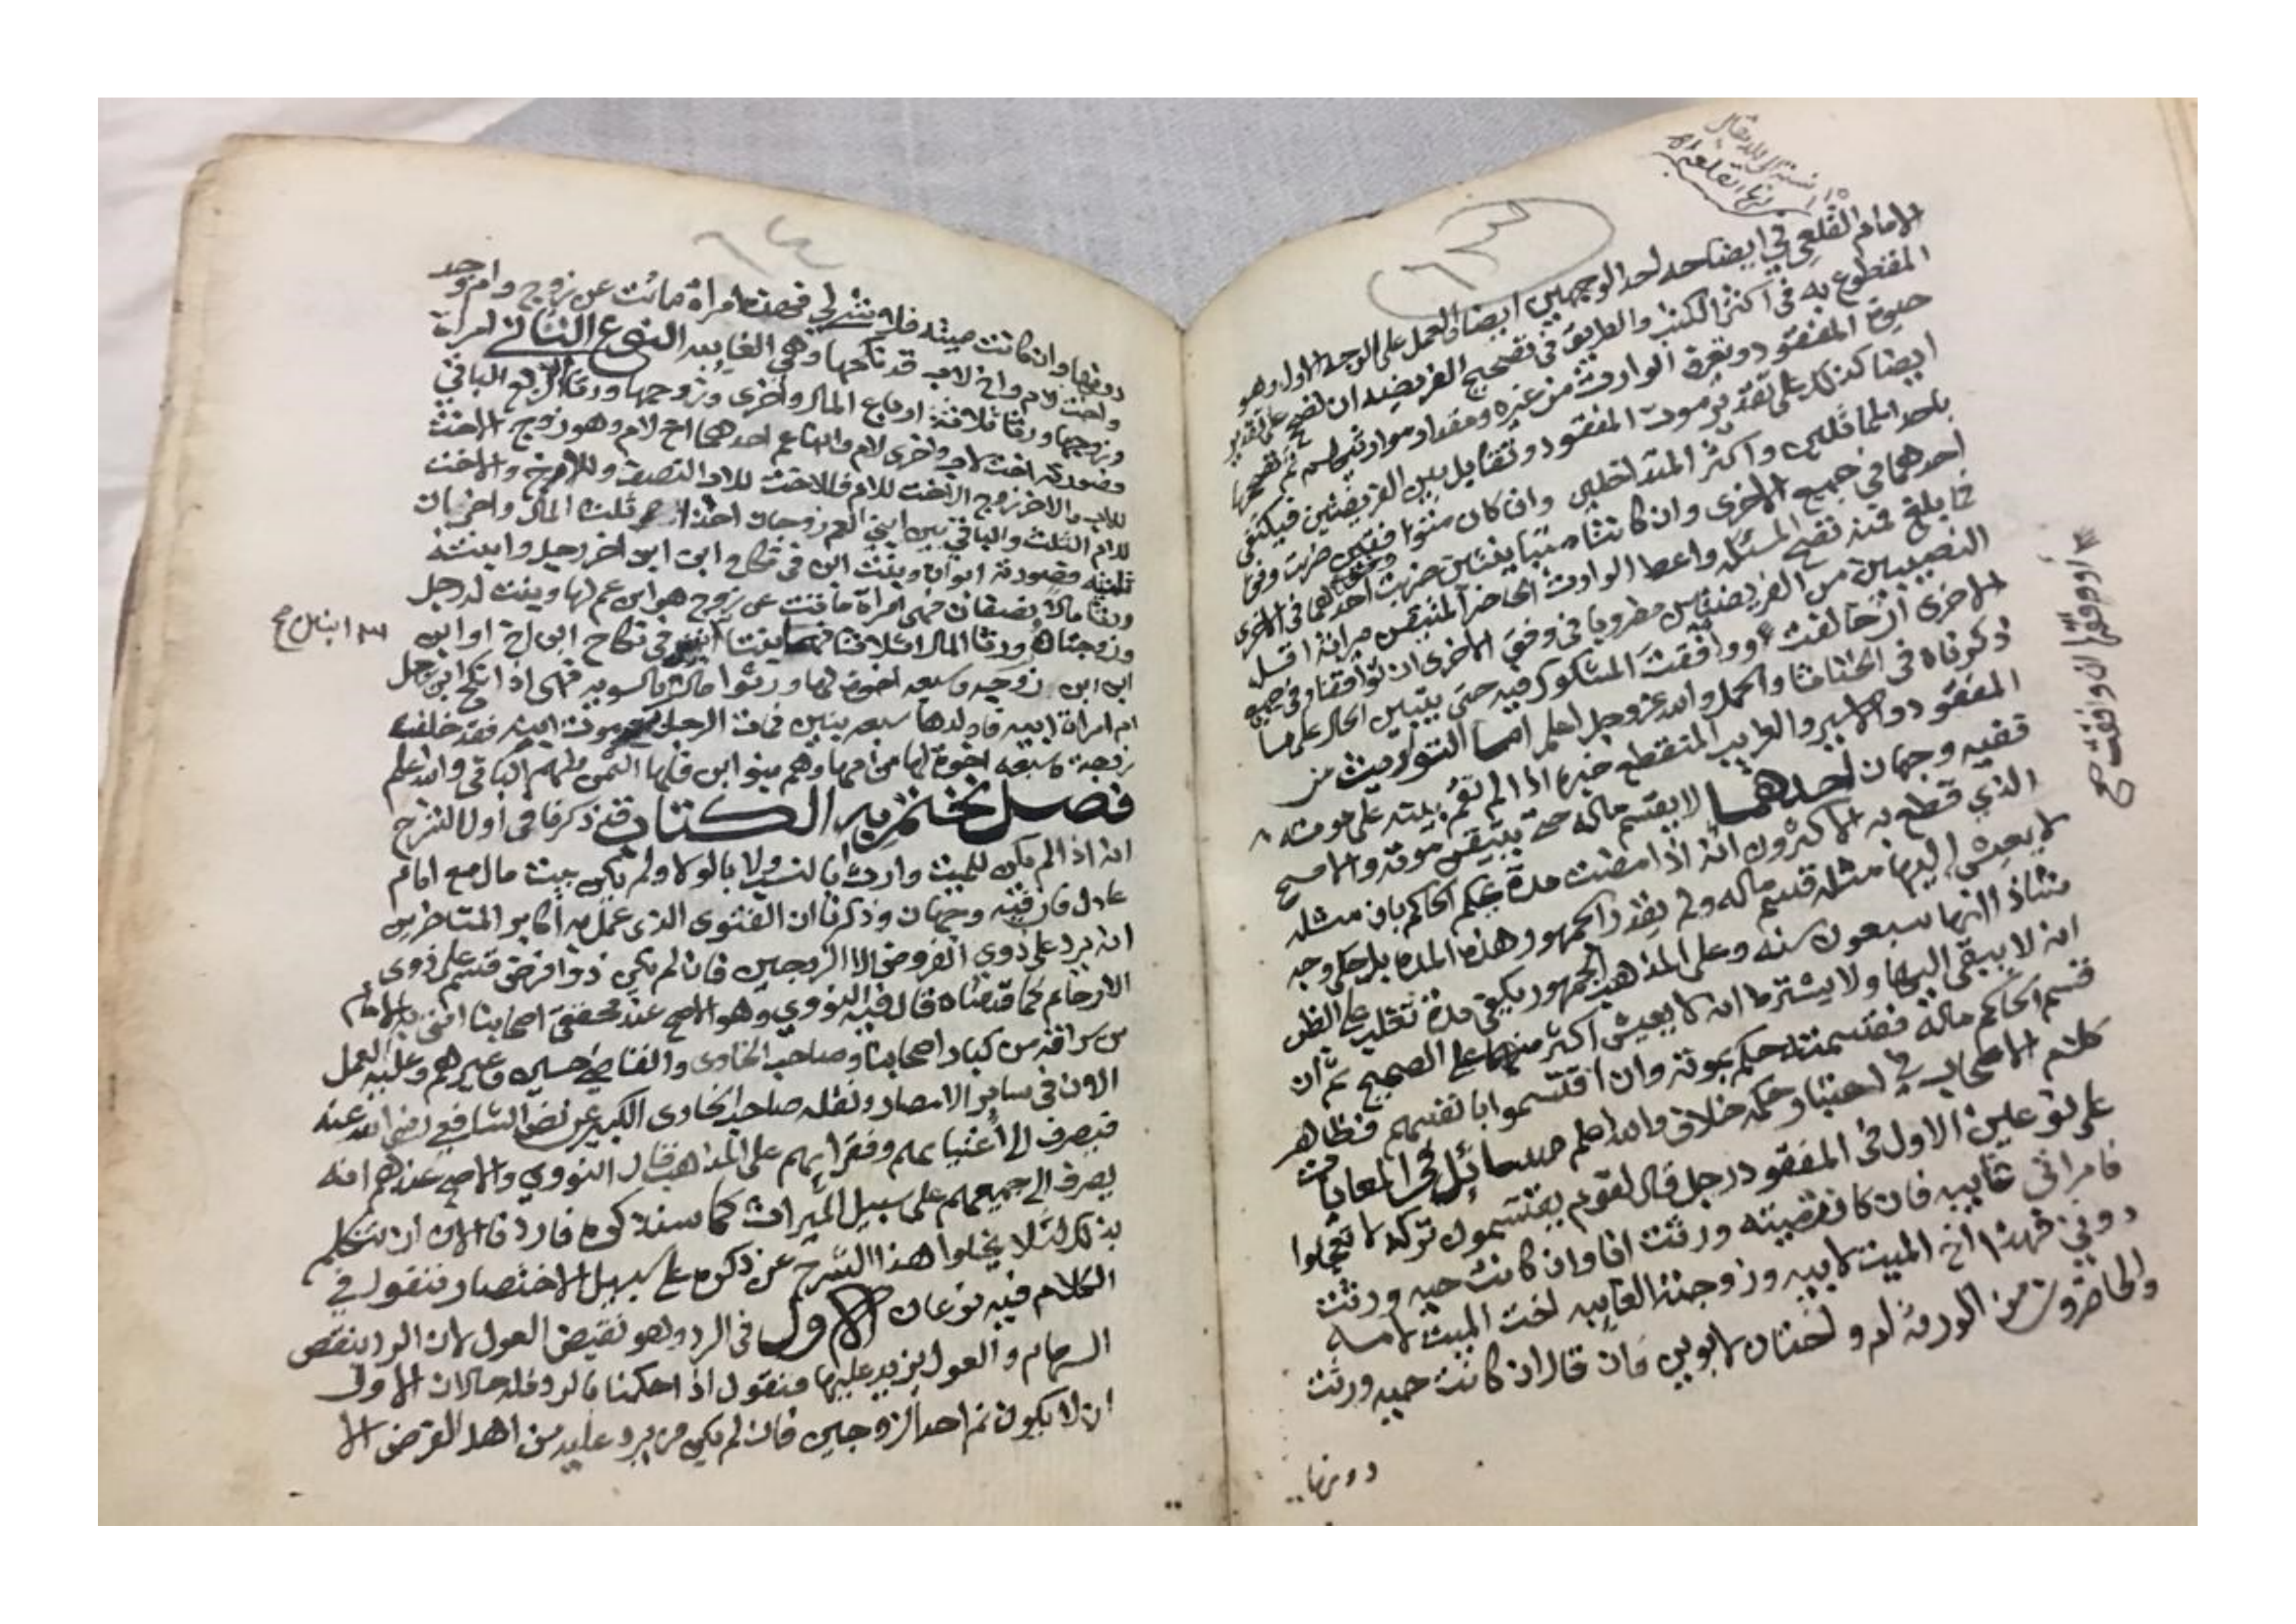 ٦٣
الامام القلعي في ايضاحه احد الوجهين ايضا والعمل على الوجه الاول وهو
المقطوع به في اكثر الكتب والطريق في تصحيح الفريضه ان تصح على تقدير
حيوة المفقود وتعرف الوارث من غيره ومقدار مواريثهم ثم تصححها
ايضا كذلك على تقدير موت المفقود وتقابل بين الفريضتين فيكتفي
باحد المماثلين واكثر المتداخلين وان كان متوافقين ضربت وفق
احدهما في جميع الاخرى وان كانتا متباينتين ضربت احدهما في الاخرى
فما بلغ فمنه تصح المسئله واعط الوارث الحاضر المتيقن ميراثه اقل
النصيبين من الفريضتين مضروبا في وفق الاخرى ان توافقتا وفي جميع
الاخرى ان خالفت او وافقت المشكوك فيه حتى يتبين الحال على ما
ذكرناه في الخناثا والحمل والله عز وجل اعلم اما التوريث من
المفقود والاسير والغريب المنقطع خبره اذا لم تقم بينه على موته
ففيه وجهان احدهما لا يقسم ماله حتى يتيقن موته والاصح
الذي قطع به الاكثرون انه اذا مضت مدة يحكم الحاكم بان مثله
لا يعيش اليها مثله قسم ماله ولم يقدر الجمهور هذه المده بل حكي وجه
شاذ انها سبعون سنه وعلى المذهب الجمهور يكفي مدة تغلب على الظن
انه لا يبقى اليها ولا يشترط انه لا يعيش اكثر منها على الصحيح ثم ان
قسم الحاكم ماله فقسمته حكم بموته وان اقتسموا بانفسهم فظاهر
كلام الاصحاب في اعتبار حكمه خلاف والله اعلم مسائل في المعايات
على نوعين الاول في المفقود رجل قال لقوم يقتسمون تركه لا تعجلوا
فامراتي غايبه فان كانت ميته ورثت انا وان كانت حيه ورثت
دوني فهذا اخ الميت لابيه وزوجته الغايبه اخت الميت لامه
والحاضرون من الورثه ام واختان لابوين فان قال ان كانت حيه ورثت
دونها
او وفقها ان وافقت صح
٦٤
دونها وان كانت ميته فلا شي لي فهذه امراة ماتت عن زوج وام وجد
واخت لام واخ لاب قد نكحها وهي الغايبه النوع الثاني امراة
وزوجها ورثا ثلاثة ارباع المال واخرى وزوجها ورثا الربع الباقي
فصورته اخت لاب واخرى لام وابنا عم احدهما اخ لام وهو زوج الاخت
للاب والاخر زوج الاخت للام فللاخت للاب النصف وللاخ والاخت
للام الثلث والباقي بين ابني العم زوجان اخذا ثلث المال واخران
ثلثيه فصورته ابوان وبنت ابن في نكاح وابن ابن اخر رجل وابنته
ورثا مالا نصفان فهي امراة ماتت عن زوج هو ابن عم لها وبنت له رجل
وزوجتاه ورثا المال اثلاثا فهما بنتا ابنين في نكاح ابن اخ او ابن
ابن ابن زوجه وسبعه اخوة لها ورثوا مالا بالسويه فهي اذا نكح ابن رجل
ام امراة ابيه فاولدها سبعه بنين فمات الرجل بعد موت ابنه فقد خلف
زوجة وسبعه اخوة لها من امها وهم بنو ابن فلها الثمن ولهم الباقي والله اعلم
فصل نختم به الكتاب قد ذكرنا في اول الشرح
انه اذا لم يكن للميت وارث بالنسب ولا بالولاء ولم يكن بيت مال مع امام
عادل فان فيه وجهان وذكرنا ان الفتوى الذي عمل به اكابر المتاخرين
انه يرد على ذوي الفروض الا الزوجين فان لم يكن ذوا فرض قسم على ذوي
الارحام كما قدمناه قال فيه النووي وهو الاصح عند محققي اصحابنا افتى به الامام
بن سراقه من كبار اصحابنا وصاحب الحاوى والقاضي حسين وغيرهم وعليه العمل
الان في ساير الامصار ونقله صاحب الحاوى الكبير عن نص الشافعي رضى الله عنه
فيصرف الى اغنيايهم وفقرايهم على المذهب قال النووي والاصح عندهم انه
يصرف الى جميعهم على سبيل الميراث كما سنذكره فاردنا الان ان نتكلم
بذلك لئلا يخلوا هذا الشرح عن ذكره على سبيل الاختصار فنقول في
الكلام فيه نوعان الاول في الرد وهو نقيض العول لان الرد ينقص
السهام والعول يزيد عليها فنقول اذا حكمنا بالرد فله حالان الاول
ان لا يكون ثم احد الزوجين فان لم يكن من يرد عليه من اهل الفرض الا